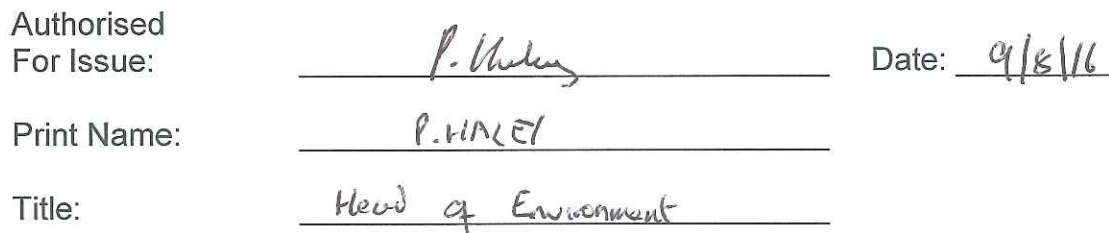 Authorised
For Issue: Date: 9/8/16
Print Name: P. HALEY
Title: Head of Environment